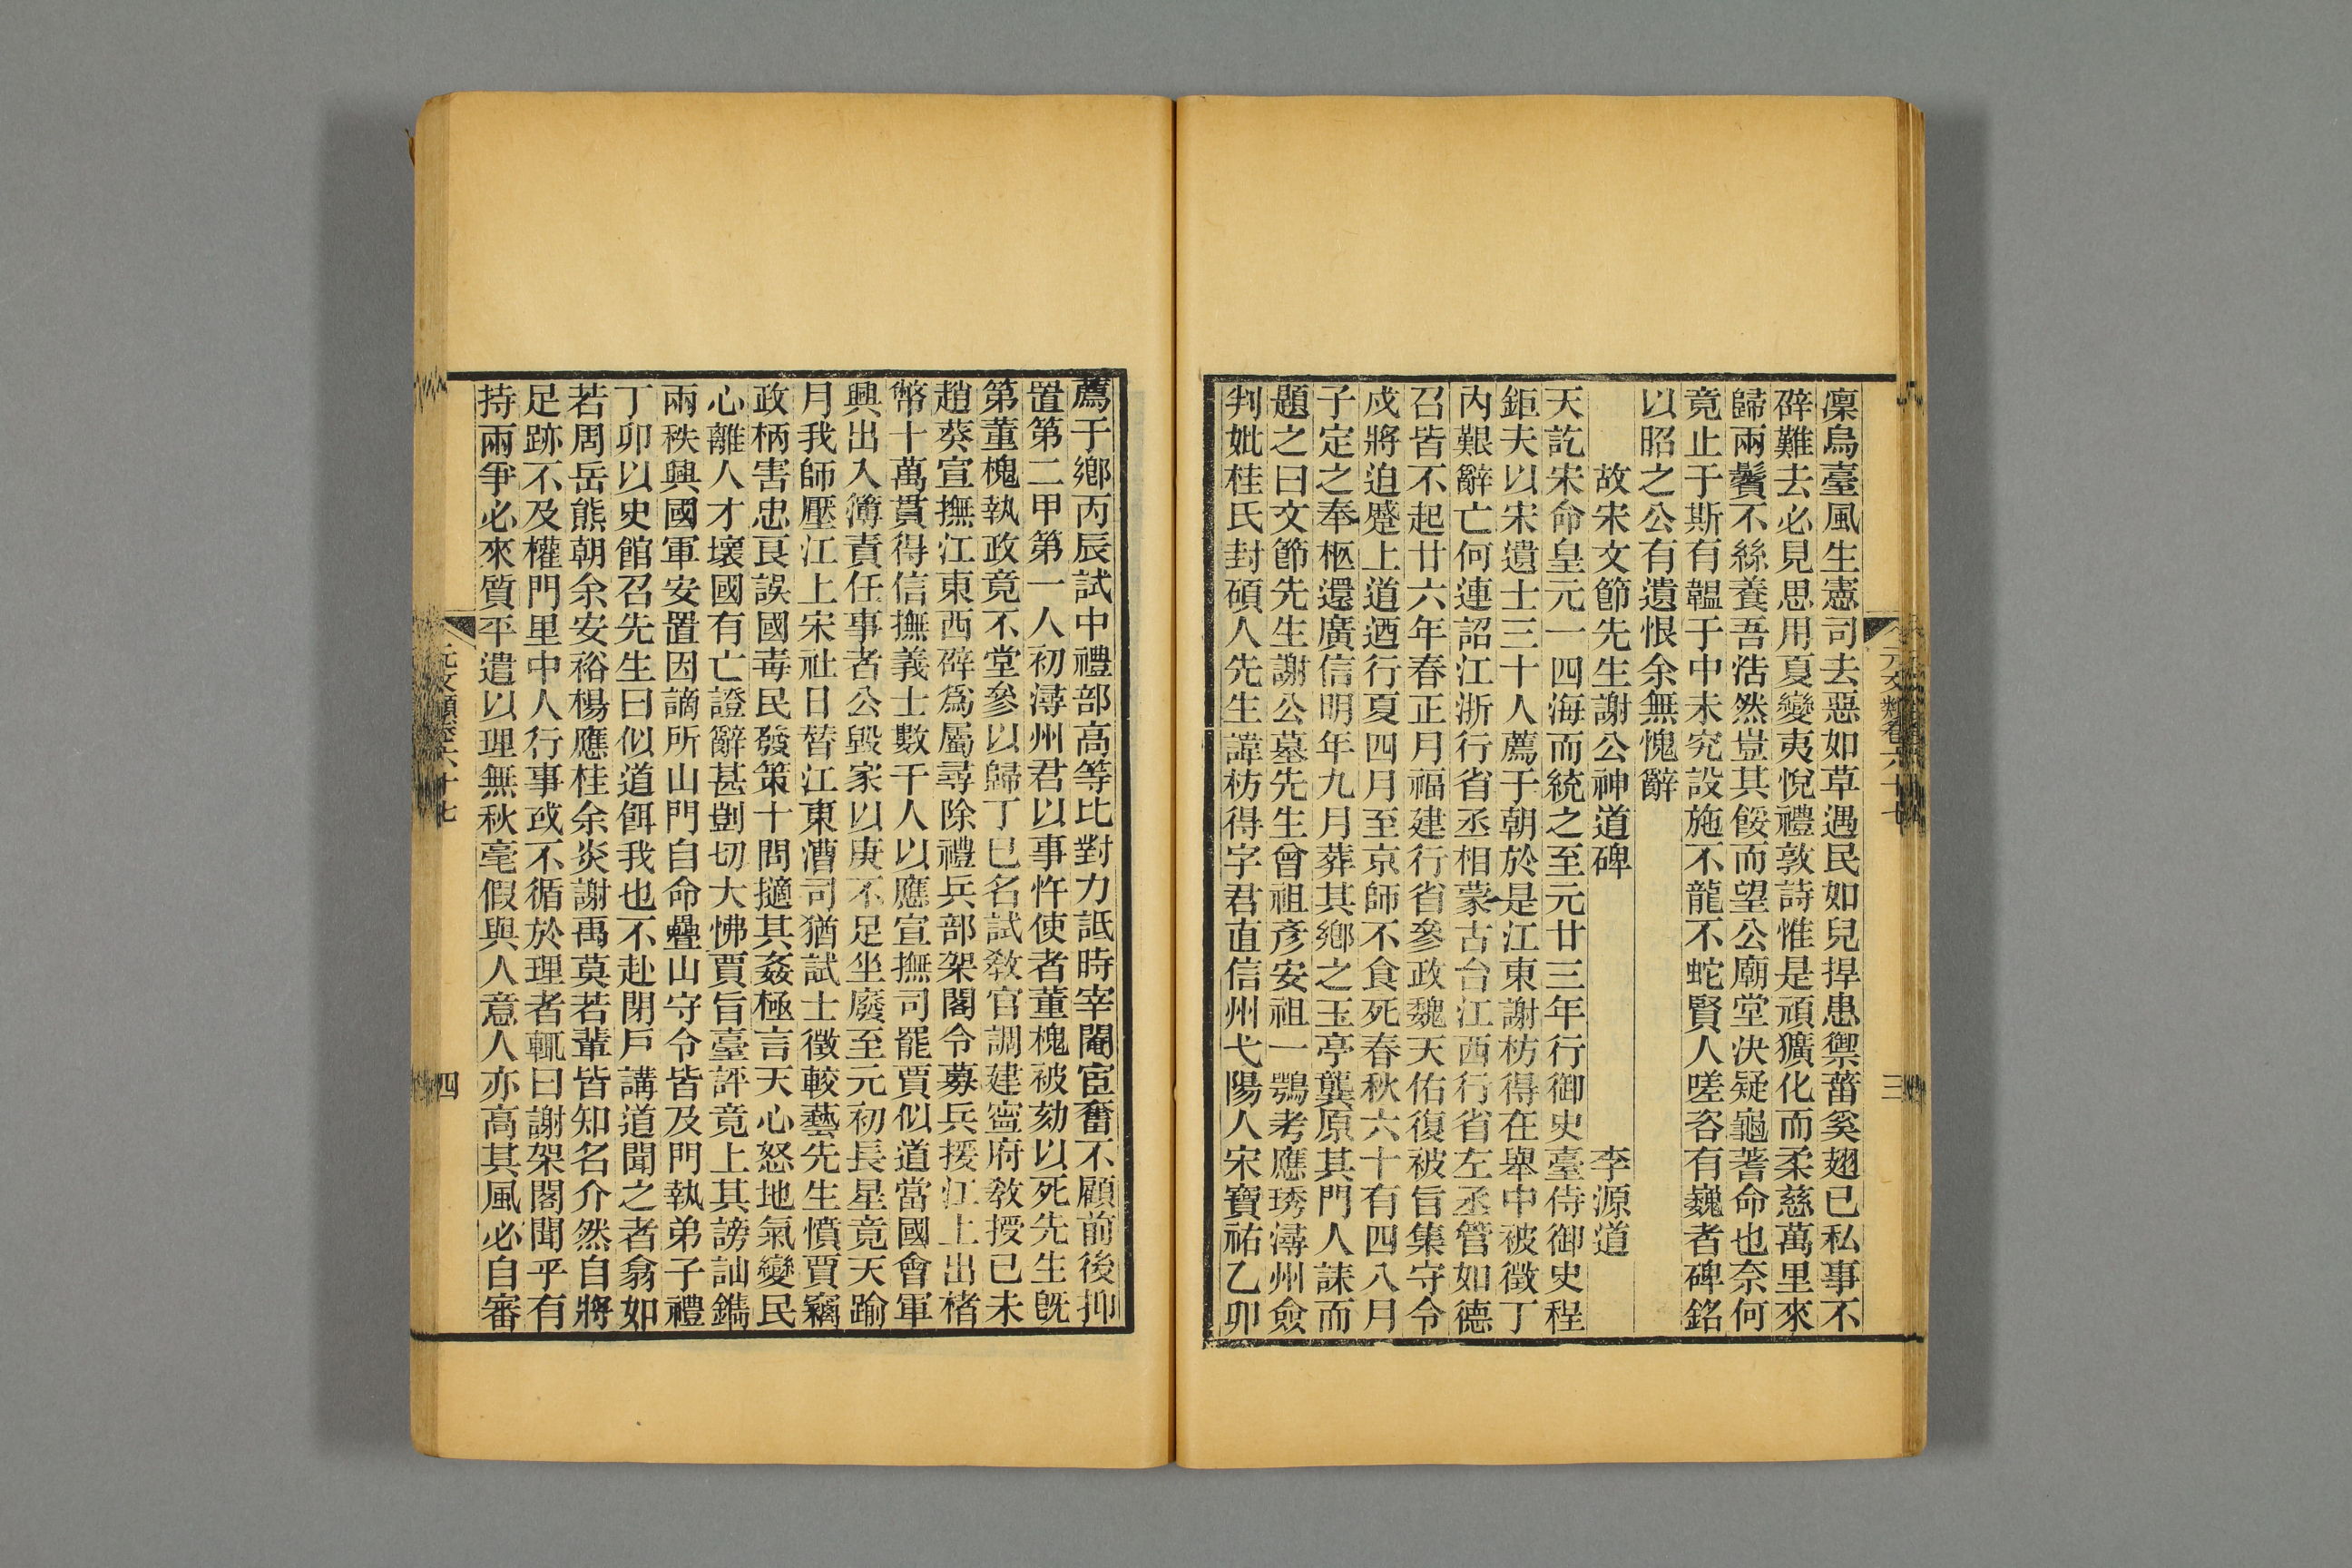 凜烏臺風生憲司去惡如草遇民如兒捍患禦菑奚翅已私事不
碎難去必見思用夏變夷悅禮敦詩惟是頑獷化而柔慈萬里來
歸兩鬢不絲養吾浩然豈其餒而望公廟堂決疑龜蓍命也奈何
竟止于斯有韞于中未究設施不龍不蛇賢人嗟咨有巍者碑銘
以昭之公有遺恨余無愧辭
故宋文節先生謝公神道碑 李源道
天訖宋命皇元一四海而統之至元廿三年行御史臺侍御史程
鉅夫以宋遺士三十人薦于朝於是江東謝枋得在舉中被徵丁
內艱辭亡何連詔江浙行省丞相蒙古台江西行省左丞管如德
召皆不起廿六年春正月福建行省參政魏天佑復被旨集守令
戍將迫蹙上道迺行夏四月至京師不食死春秋六十有四八月
子定之奉柩還廣信明年九月葬其鄉之玉亭龔原其門人誄而
題之曰文節先生謝公墓先生曾祖彥安祖一鶚考應琇潯州僉
判妣桂氏封碩人先生諱枋得字君直信州弋陽人宋寶祐乙卯
元文類卷六十七
三
薦于鄉丙辰試中禮部高等比對力詆時宰閹宦奮不顧前後抑
置第二甲第一人初潯州君以事忤使者董槐被劾以死先生旣
第董槐執政竟不堂參以歸丁巳名試敎官調建寧府敎授已未
趙葵宣撫江東西辟爲屬尋除禮兵部架閣令募兵援江上出楮
幣十萬貫得信撫義士數千人以應宣撫司罷賈似道當國會軍
興出入簿責任事者公毀家以庚不足坐廢至元初長星竟天踰
月我師壓江上宋社日替江東漕司猶試士徵較藝先生憤賈竊
政柄害忠良誤國毒民發策十問擿其姦極言天心怒地氣變民
心離人才壞國有亡證辭甚剴切大怫賈旨臺評竟上其謗訕鐫
兩秩興國軍安置因謫所山門自命疊山守令皆及門執弟子禮
丁卯以史館召先生曰似道餌我也不赴閉戶講道聞之者翕如
若周岳熊朝余安裕楊應桂余炎謝禹莫若輩皆知名介然自將
足跡不及權門里中人行事或不循於理者輒曰謝架閣聞乎有
持兩爭必來質平遣以理無秋毫假與人意人亦高其風必自審
元文類卷六十七
四